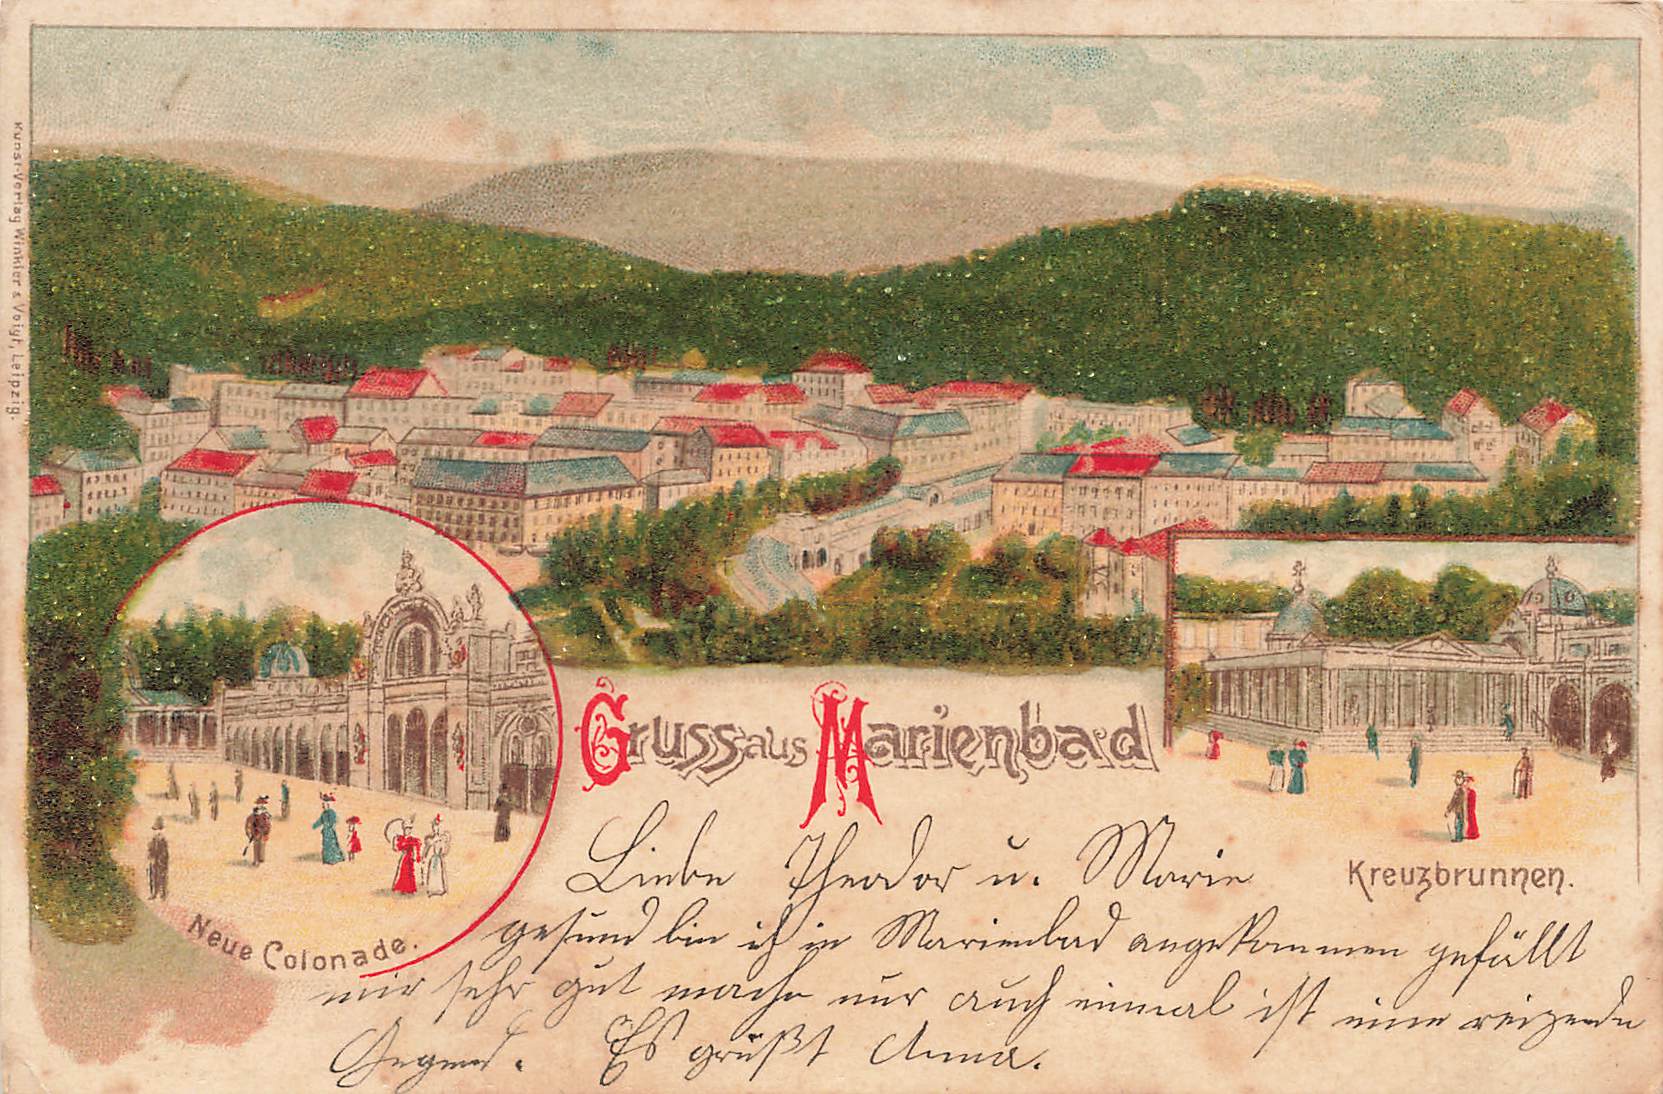 Kunst-Verlag Winkler & Voigt, Leipzig.
Gruss aus Marienbad
Neue Colonade.
Kreuzbrunnen.
Liebe Theodor u. Marie
gesund bin ich in Marienbad angekommen gefällt
mir sehr gut mache nur auch einmal ist eine reizende
Gegend. Es grüßt Anna.